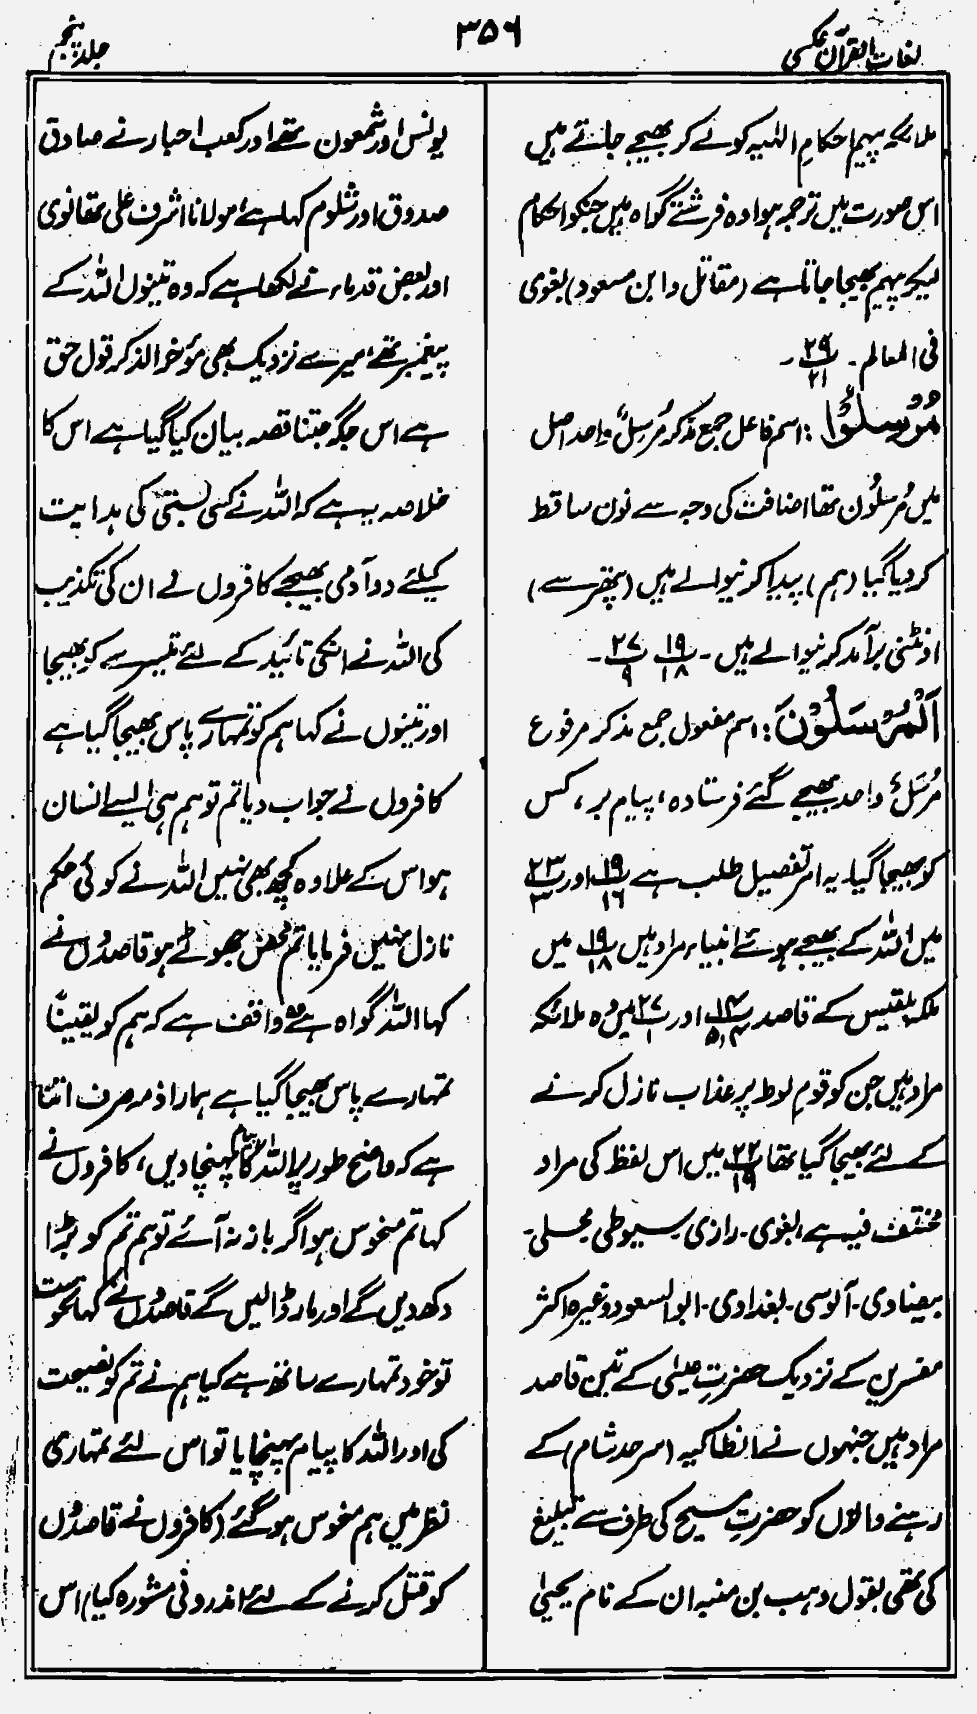 لغات القرآن عکسی
۳۵۶
جلد پنجم
ملائکہ پیہم احکامِ الٰہیہ کو لے کر بھیجے جاتے ہیں
اس صورت میں ترجمہ ہوا وہ فرشتے گواہ ہیں جنکو احکام
لیکر پیہم بھیجا جاتا ہے (مقاتل و ابن مسعود) بغوی
فی المعالم۔ ۲۹/۲۱۔
مُرْسِلُوْا : اسم فاعل جمع مذکر مُرسِلٌ واحد اصل
میں مُرسِلُون تھا اضافت کی وجہ سے نون ساقط
کر دیا گیا (ہم) پیدا کرنیوالے ہیں (پتھر سے)
اونٹنی برآمد کرنیوالے ہیں۔ ۱۹/۱۸ ۲۷/۹۔
اَلْمُرْسَلُوْنَ : اسم مفعول جمع مذکر مرفوع
مُرسَلٌ واحد بھیجے گئے فرستادہ، پیام بر، کس
کو بھیجا گیا۔ یہ امر تفصیل طلب ہے ۱۹/۱۶ اور ۲۳/۳
میں اللہ کے بھیجے ہوئے انبیاء مراد ہیں ۱۹/۱۸ میں
ملکہ بلقیس کے قاصد ۱۴/۵،۴ اور ۲۷/۱ میں وہ ملائکہ
مراد ہیں جن کو قومِ لوط پر عذاب نازل کرنے
کے لئے بھیجا گیا تھا ۲۲/۱۹ میں اس لفظ کی مراد
مختلف فیہ ہے بغوی۔ رازی۔ سیوطی محلی۔
بیضاوی۔ آلوسی۔ بغدادی۔ ابوالسعود وغیرہ اکثر
مفسرین کے نزدیک حضرتِ عیسٰی کے تین قاصد
مراد ہیں جنہوں نے انطاکیہ (سرحد شام) کے
رہنے والوں کو حضرتِ مسیح کی طرف سے تبلیغ
کی تھی بقول وہب بن منبہ ان کے نام یحیٰی
یونس اور شمعون تھے اور کعب احبار نے صادق
صدوق اور شلوم کہا ہے، مولانا اشرف علی تھانوی
اور بعض قدماء نے لکھا ہے کہ وہ تینوں اللہ کے
پیغمبر تھے، میرے نزدیک بھی مؤخر الذکر قول حق
ہے اس جگہ جتنا قصہ بیان کیا گیا ہے اس کا
خلاصہ یہ ہے کہ اللہ نے کسی بستی کی ہدایت
کیلئے دو آدمی بھیجے کافروں نے ان کی تکذیب
کی اللہ نے انکی تائید کے لئے تیسرے کو بھیجا
اور تینوں نے کہا ہم کو تمہارے پاس بھیجا گیا ہے
کافروں نے جواب دیا تم تو ہم ہی ایسے انسان
ہو اس کے علاوہ کچھ بھی نہیں اللہ نے کوئی حکم
نازل نہیں فرمایا تم محض جھوٹے ہو قاصدوں نے
کہا اللہ گواہ ہے وہ واقف ہے کہ ہم کو یقیناً
تمہارے پاس بھیجا گیا ہے ہمارا ذمہ صرف اتنا
ہے کہ واضح طور پر اللہ کا پیام پہنچا دیں، کافروں نے
کہا تم منحوس ہو اگر باز نہ آئے تو ہم تم کو بڑا
دکھ دیں گے اور مار ڈالیں گے قاصدوں نے کہا نحوست
تو خود تمہارے ساتھ ہے کیا ہم نے تم کو نصیحت
کی اور اللہ کا پیام پہنچایا تو اس لئے تمہاری
نظر میں ہم منحوس ہو گئے (کافروں نے قاصدوں
کو قتل کرنے کے لئے اندرونی مشورہ کیا) اس